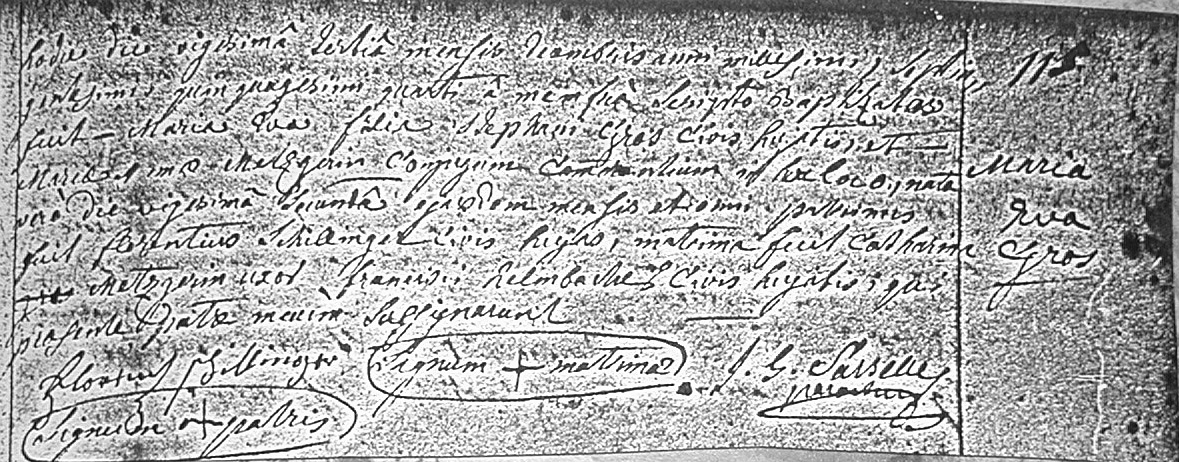 hodie die vigesimâ tertiâ mensis decembris anni millesimi septin
gentesimi quinquagesimi quarti â me infrà Scripto Baptizata
fuit Maria Eva filia Stephani Gros civis hujatis et
Mariæ Metzgerin Conjugum Commorantium in hoc loco, nata
verò die vigesimâ Secundâ ejusdem mensis et anni patrinus
fuit florentius Schillinger civis hujas, matrina fuit Catharina
Metzgerin uxor francisci helmbacher Civis hujatis, qui
præsente patre mecum Subsignarunt
florentius Schillinger Signum + matrinæ J. G. Sasselle
parochus
Signum + patris
113
Maria
Eva
Gros